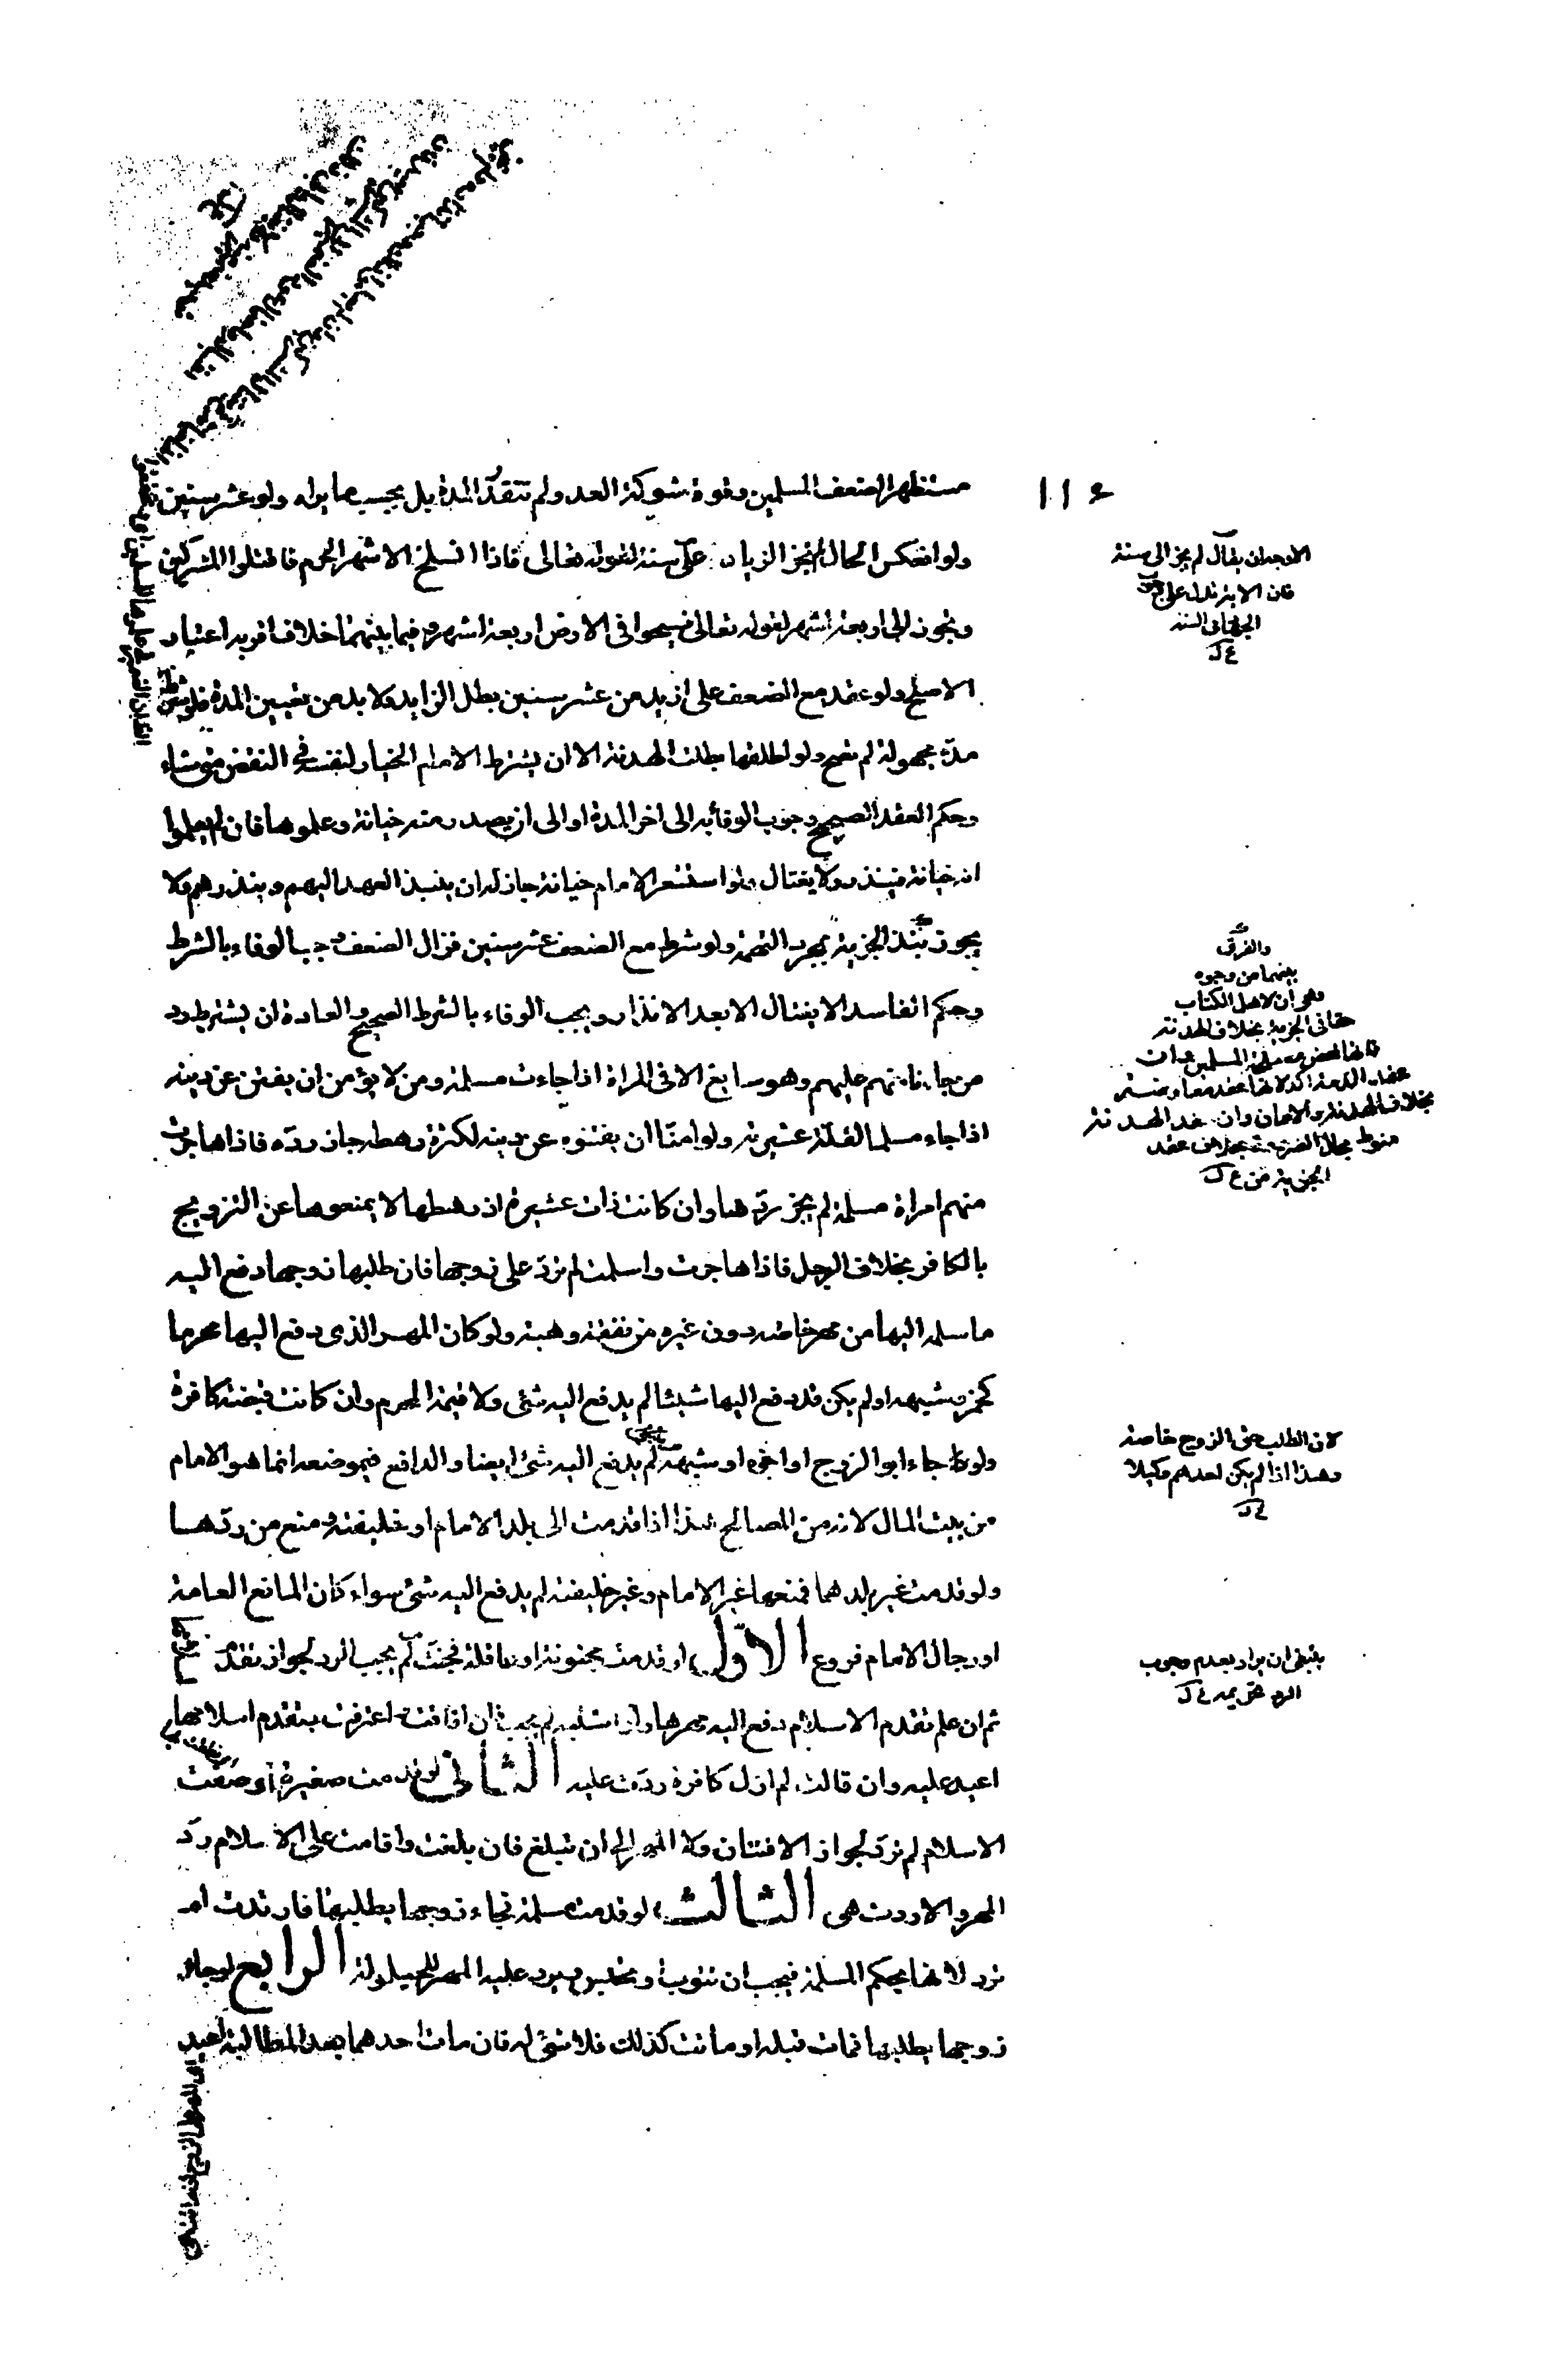 ١١٤
مستظهرا لضعف المسلمين وقوة شوكة العدو ولم تتقدّر المدة بل بحسب ما يراه ولو عشر سنين
ولو انعكس الحال لم تجز الزيادة على سنة لقوله تعالى فاذا انسلخ الاشهر الحرم فاقتلوا المشركين
ويجوز الى اربعة اشهر لقوله تعالى فسيحوا في الارض اربعة اشهر وفيما بينهما خلاف اقربه اعتبار
الاصلح ولو عقد مع الضعف على ازيد من عشر سنين بطل الزايد ولا بد من تعيين المدة فلو شرط
مدّة مجهولة لم تصح ولو اطلقها بطلت الهدنة الا ان يشترط الامام الخيار لنفسه في النقض متى شاء
وحكم العقد الصحيح وجوب الوفاء به الى اخر المدة او الى ان يصدر منه خيانة وعلموها فان لم يعلموا
انه خيانة فينذر ولا يغتال ولو استشعر الامام خيانة جاز له ان ينبذ العهد اليهم وينذرهم ولا
يجوز نبذ الجزية بمجرد التهمة ولو شرط مع الضعف عشر سنين فزال الضعف وجب الوفاء بالشرط
وحكم الفاسد الا يغتال الا بعد الانذار ويجب الوفاء بالشرط الصحيح والعادة ان يشترط رد
من جاءنا منهم عليهم وهو سايغ الا في المراة اذا جاءت مسلمة ومن لا يؤمن ان يفتن عن دينه
اذا جاء مسلما لقلّة عشيرته ولو امنّا ان يفتنوه عن دينه لكثرة رهطه جاز ردّه فاذا هاجرت
منهم امراة مسلمة لم يجز ردّها وان كانت ذات عشيرة اذ رهطها لا يمنعوها عن التزويج
بالكافر بخلاف الرجل فاذا هاجرت واسلمت لم تردّ على زوجها فان طلبها زوجها دفع اليه
ما سلمه اليها من مهر خاصه دون غيره من نفقة وهبة ولو كان المهر الذى دفع اليها محرما
كخمر وشبهه او لم يكن قد دفع اليها شيئا لم يدفع اليه شئ ولا قيمة المحرم وان كانت قبضته كافرة
ولو جاء ابو الزوج او اخوه او شبههما لم يدفع اليه شئ ايضا والدافع فى موضعه انما هو الامام
من بيت المال لانه من المصالح هذا اذا قدمت الى بلد الامام او خليفته ومنع من ردّها
ولو قدمت غير بلدهما فمنعها غير الامام وغير خليفته لم يدفع اليه شئ سواء كان المانع العامة
او رجال الامام فروع الاوّل لو قدمت مجنونة او عاقلة فجنّت لم يجب الرد لجواز تقدّم
ثم ان علم تقدم الاسلام دفع اليه مهرها وان اشتبه لم يجب فان افاقت واعترفت بتقدم اسلامها
اعيد عليه وان قالت لم ازل كافرة ردّت عليه الثانى لو قدمت صغيرة ووصفت
الاسلام لم تردّ لجواز الافتتان ولا المهر الى ان تبلغ فان بلغت واقامت على الاسلام ردّ
المهر والا ردت هى الثالث لو قدمت مسلمة فجاء زوجها يطلبها فارتدت لم
ترد لانها بحكم المسلمة فيجب ان تتوب وتحبس ويرد عليه المهر للحيلولة الرابع لو جاء
زوجها يطلبها فمات قبله او ماتت كذلك فلا شئ له فان مات احدهما بعد المطالبة اعيد
الاوجه ان يقال لم يجز الى سنة
فان الاية تدل على وجوب
الجهاد فى السنة
ع ل
والفرق
بينهما من وجوه
وهو ان لاهل الكتاب
حقا فى الجزية بخلاف الهدنة
فانها لمحض مصلحة المسلمين
عقد الذمة اكد لانها عقد معاوضة
بخلاف الهدنة والامان وان عقد الهدنة
منوط بحال الضرورة بخلاف عقد
الجزية من ع ل
لان الطلب حق الزوج خاصة
وهذا اذا لم يكن احدهم وكيلا
ع ل
ينبغى ان يراد بعدم وجوب
الرد تحريمه ع ل